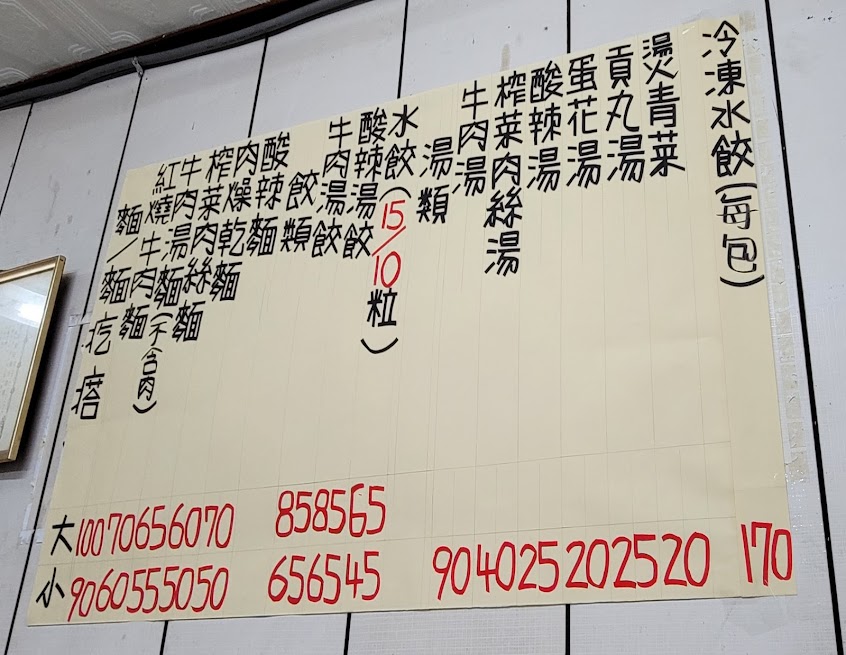 麵/麵疙瘩
紅燒牛肉麵
牛肉湯麵(不含肉)
榨菜肉絲麵
肉燥乾麵
酸辣麵
餃類
牛肉湯餃
酸辣湯餃
水餃(15/10粒)
湯類
牛肉湯
榨菜肉絲湯
酸辣湯
蛋花湯
貢丸湯
燙青菜
冷凍水餃(每包)
大 100 70 65 60 70 85 85 65
小 90 60 55 50 50 65 65 45 90 40 25 20 25 20 170